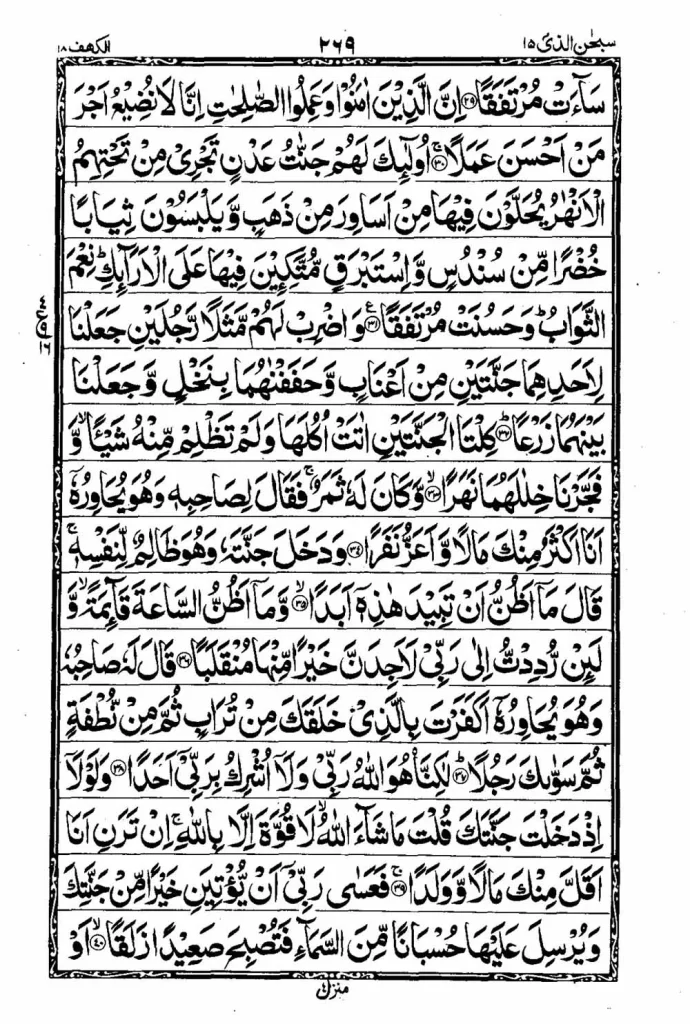 سبحٰن الذی ۱۵ ۲۶۹ الکهف ۱۸
سَآءَتْ مُرْتَفَقًا ﴿۲۹﴾ اِنَّ الَّذِيْنَ اٰمَنُوْا وَعَمِلُوا الصّٰلِحٰتِ اِنَّا لَا نُضِيْعُ اَجْرَ
مَنْ اَحْسَنَ عَمَلًا ﴿۳۰﴾ۚ اُولٰٓئِكَ لَهُمْ جَنّٰتُ عَدْنٍ تَجْرِیْ مِنْ تَحْتِهِمُ
الْاَنْهٰرُ يُحَلَّوْنَ فِيْهَا مِنْ اَسَاوِرَ مِنْ ذَهَبٍ وَّيَلْبَسُوْنَ ثِيَابًا
خُضْرًا مِّنْ سُنْدُسٍ وَّاِسْتَبْرَقٍ مُّتَّكِـِٕيْنَ فِيْهَا عَلَى الْاَرَآئِكِ ؕ نِعْمَ
الثَّوَابُ ؕ وَحَسُنَتْ مُرْتَفَقًا ﴿۳۱﴾ع وَاضْرِبْ لَهُمْ مَّثَلًا رَّجُلَيْنِ جَعَلْنَا
لِاَحَدِهِمَا جَنَّتَيْنِ مِنْ اَعْنَابٍ وَّحَفَفْنٰهُمَا بِنَخْلٍ وَّجَعَلْنَا
بَيْنَهُمَا زَرْعًا ﴿۳۲﴾ؕ كِلْتَا الْجَنَّتَيْنِ اٰتَتْ اُكُلَهَا وَلَمْ تَظْلِمْ مِّنْهُ شَيْـًٔا ۙ وَّ
فَجَّرْنَا خِلٰلَهُمَا نَهَرًا ﴿۳۳﴾ۙ وَّكَانَ لَهٗ ثَمَرٌ ۚ فَقَالَ لِصَاحِبِهٖ وَهُوَ يُحَاوِرُهٗٓ
اَنَا اَكْثَرُ مِنْكَ مَالًا وَّاَعَزُّ نَفَرًا ﴿۳۴﴾ وَدَخَلَ جَنَّتَهٗ وَهُوَ ظَالِمٌ لِّنَفْسِهٖ ۚ
قَالَ مَآ اَظُنُّ اَنْ تَبِيْدَ هٰذِهٖٓ اَبَدًا ﴿۳۵﴾ۙ وَّمَآ اَظُنُّ السَّاعَةَ قَآئِمَةً ۙ وَّ
لَئِنْ رُّدِدْتُّ اِلٰى رَبِّیْ لَاَجِدَنَّ خَيْرًا مِّنْهَا مُنْقَلَبًا ﴿۳۶﴾ قَالَ لَهٗ صَاحِبُهٗ
وَهُوَ يُحَاوِرُهٗٓ اَكَفَرْتَ بِالَّذِیْ خَلَقَكَ مِنْ تُرَابٍ ثُمَّ مِنْ نُّطْفَةٍ
ثُمَّ سَوّٰىكَ رَجُلًا ﴿۳۷﴾ؕ لٰكِنَّا۠ هُوَ اللّٰهُ رَبِّیْ وَلَآ اُشْرِكُ بِرَبِّیْٓ اَحَدًا ﴿۳۸﴾ وَلَوْلَآ
اِذْ دَخَلْتَ جَنَّتَكَ قُلْتَ مَا شَآءَ اللّٰهُ ۙ لَا قُوَّةَ اِلَّا بِاللّٰهِ ۚ اِنْ تَرَنِ اَنَا
اَقَلَّ مِنْكَ مَالًا وَّوَلَدًا ﴿۳۹﴾ۚ فَعَسٰى رَبِّیْٓ اَنْ يُّؤْتِيَنِ خَيْرًا مِّنْ جَنَّتِكَ
وَيُرْسِلَ عَلَيْهَا حُسْبَانًا مِّنَ السَّمَآءِ فَتُصْبِحَ صَعِيْدًا زَلَقًا ﴿۴۰﴾ۙ اَوْ
منزل ۴